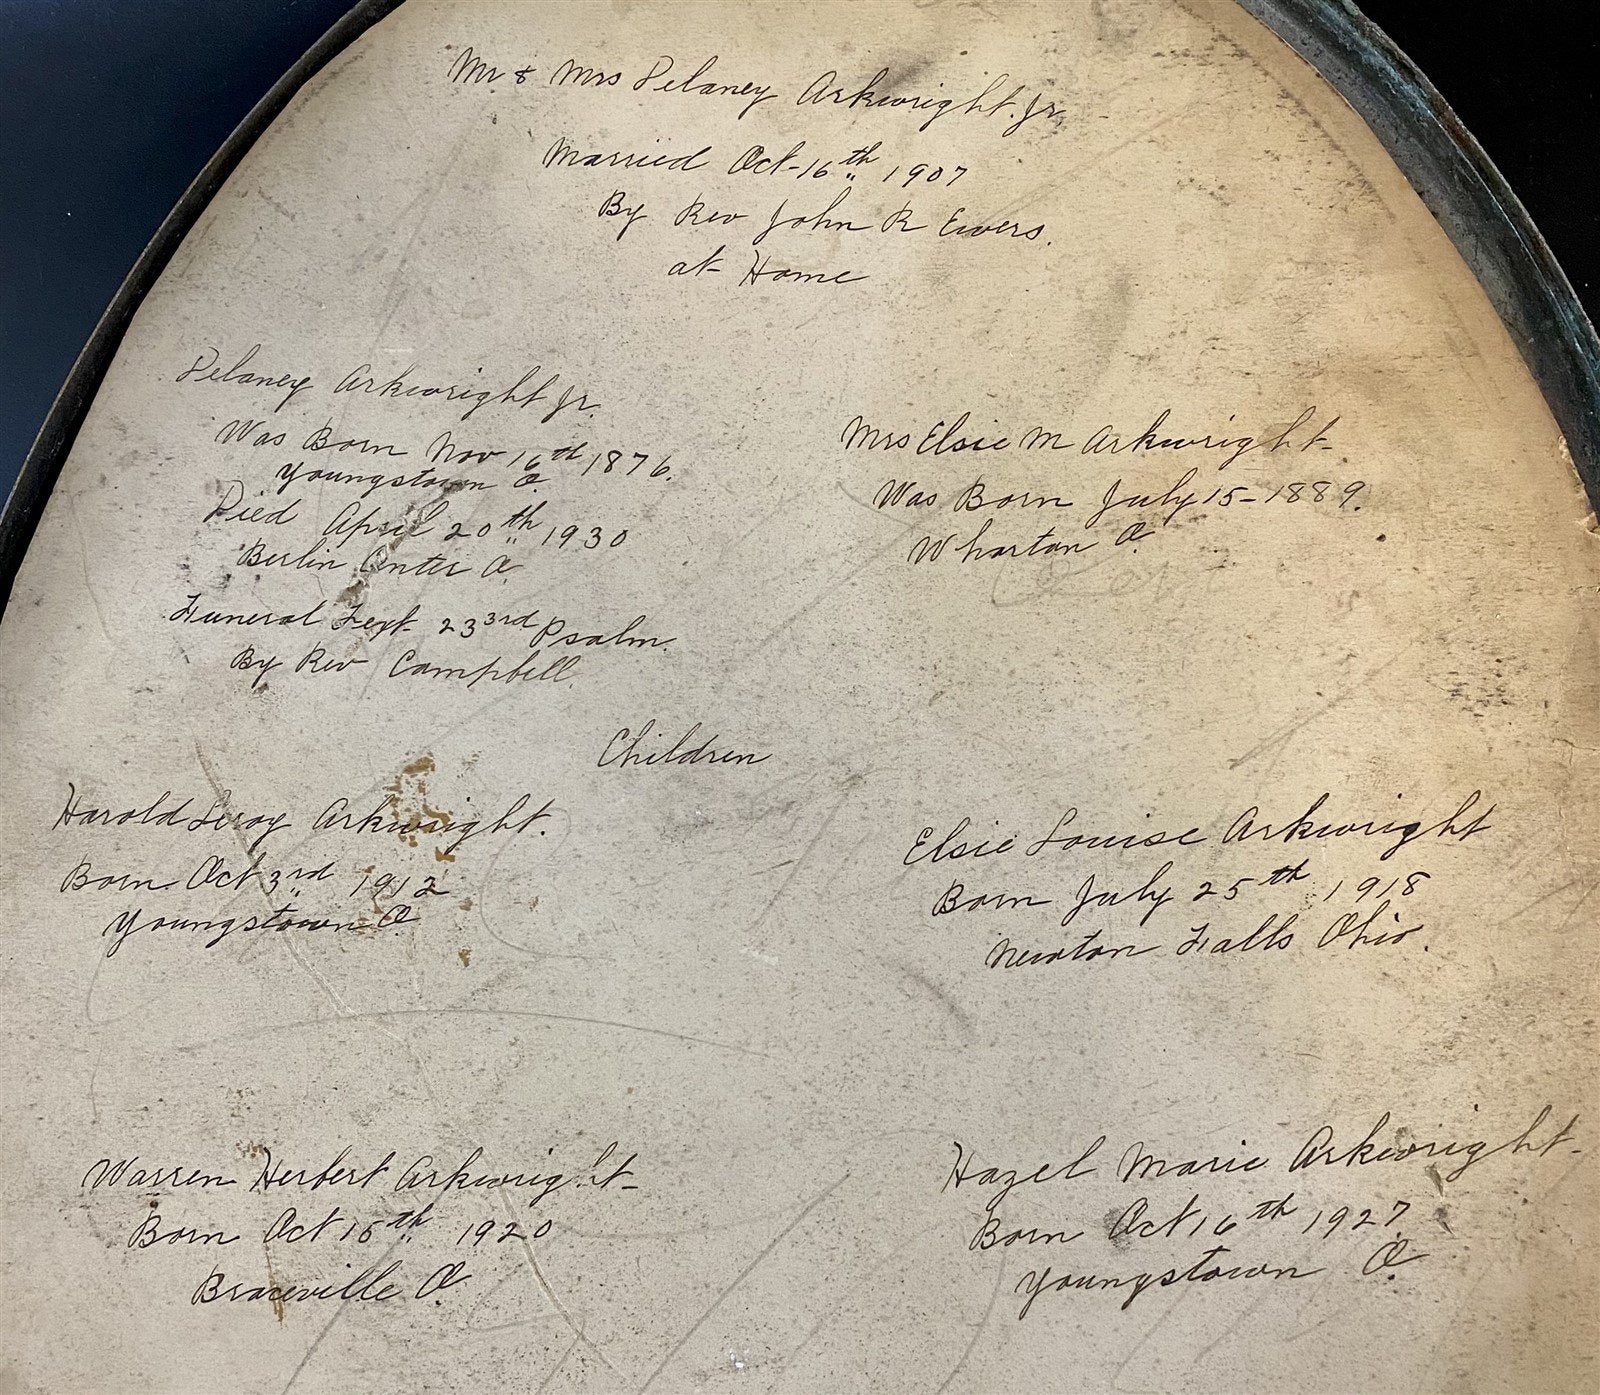 Mr & Mrs Delaney Arkwright. Jr.
Married Oct-16th 1907
By Rev John R Ewers.
at Home
Delaney Arkwright Jr.
Was Born Nov 16th 1876.
Youngstown O.
Died April 20th 1930
Berlin Center O.
Funeral Text 23 3rd Psalm.
By Rev Campbell.
Mrs Elsie M Arkwright
Was Born July 15-1889.
Wharton O.
Children
Harold Leroy Arkwright.
Born. Oct 3rd 1912
Youngstown O.
Elsie Louise Arkwright
Born July 25th 1918
Newton Falls Ohio.
Warren Herbert Arkwright
Born Oct 15th 1920
Braceville O.
Hazel Marie Arkwright
Born Oct 16th 1927
Youngstown O.